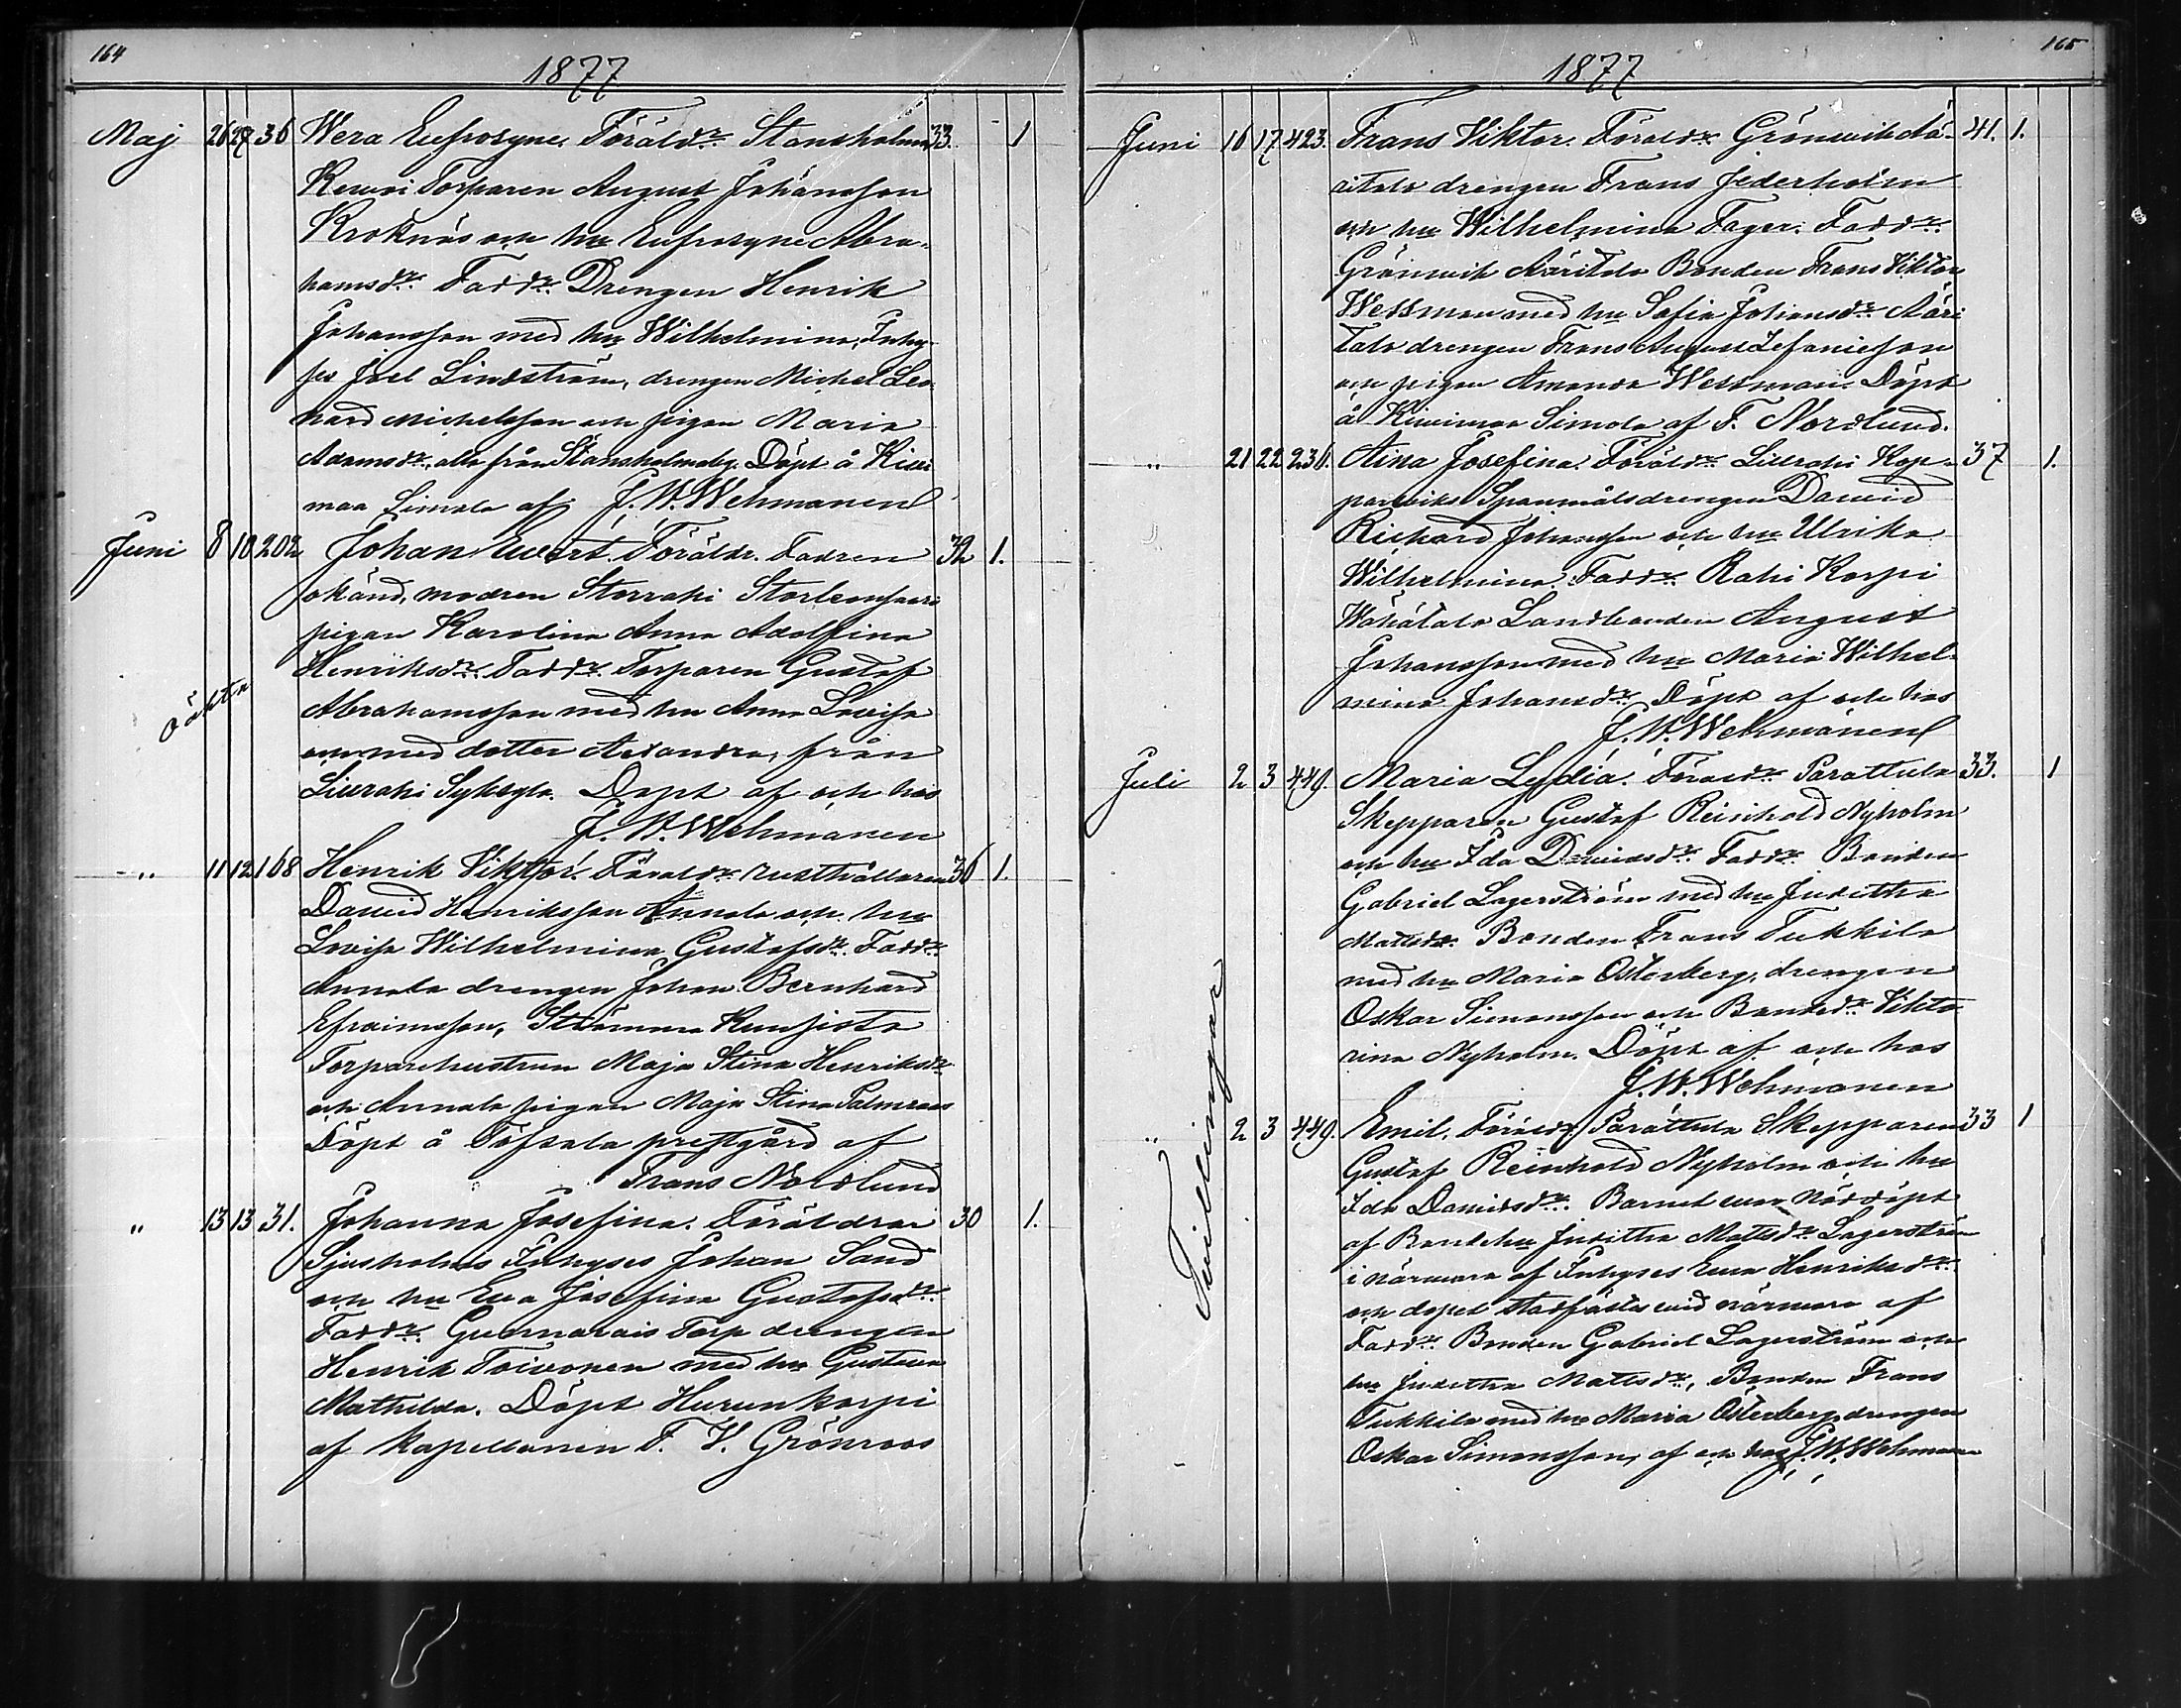 164
1877
Maj 26 27 36 Wera Eufrosyne. Föräldr. Stansholms 33. 1
Torparen August Johansson
Kroknäs och hu Eufrosyne Abra-
hamsdr. Faddr. Drengen Henrik
Johansson med hu Wilhelmina, Inhy-
ses Joel Lindström, drengen Michel Leo-
nard Michelsson och pigan Maria
Adamsdr., alla från Stansholms Döpt å Kivi
maa Simola af J. W. Wehmanen
Juni 8 10 202 Johan Evert. Föräldr. Fadren 32 1.
okänd, modren Storrahi
pigan Karolina Anna Adolfina
Henriksdr. Faddr. Torparen Gustaf
oäkta
Abrahamsson med hu Anna Lovisa
och med dotter Alexandra, från
Lillrahi Döpt af och hos
J. W. Wehmanen
" 11 12 168 Henrik Viktor. Föräldr. rusthållaren 36 1.
David Henriksson Annala och hu
Lovisa Wilhelmina Gustafsdr. Faddr.
Annala drengen Johan Bernhard
Efraimsson, Strömma
Torparehustrun Maja Stina Henriksdr
och Annala pigan Maja Stina Palmroos
Döpt å Töfsala prestgård af
Frans Nordlund
" 13 13 31. Johanna Josefina. Föräldrar 30 1.
Sjusholms Inhyses Johan Sand
och hu Eva Josefina Gustafsdr.
Faddr. Gunnarais Torp drengen
Henrik Toivonen med hu Gustava
Mathilda. Döpt Hurunkorpi
af Kapellanen F. V. Grönroos
165
1877
Juni 16 17 423. Frans Viktor. Föräldr. Grönvik Ää- 41. 1.
ritalo drengen Frans Jederholm
och hu Wilhelmina Fager. Faddr.
Grönvik Ääritalo Bonden Frans Viktor
Wessman med hu Sofia Johansdr. Ääri
talo drengen Frans August Zefaniesson
och pigan Amanda Wessman. Döpt
å Kivimaa Simola af F. Nordlund.
" 21 22 236. Aina Josefina. Föräldr. Lillrahi Kop- 37 1.
Spanmålsdrengen David
Richard Johansson och hu Ulrika
Wilhelmina. Faddr. Rahi Korpi
Wähätalo Landbonden August
Johansson med hu Maria Wilhel-
mina Johansdr. Döpt af och hos
J. W. Wehmanen
Juli 2 3 449. Maria Lydia. Föräldr. Parattula 33. 1
Skepparen Gustaf Reinhold Nyholm
och hu Ida Davidsdr. Faddr. Bonden
Gabriel Lagerström med hu Juditha
Mattsdr. Bonden Frans Tukkila
med hu Maria Österberg, drengen
Oskar Simonsson och Bondedr. Vikto
rina Nyholm. Döpt af och hos
J. W. Wehmanen
Tvillingar
" 2 3 449. Emil. Föräldr. Parattula Skepparen 33 1
Gustaf Reinhold Nyholm och hu
Ida Davidsdr. Barnet var nöddöpt
af Bondehu Juditha Mattsdr. Lagerström
i närvaro af Inhyses Eva Henriksdr.
och dopet stadfästes vid närvaro af
Faddr. Bonden Gabriel Lagerström och
hu Juditha Mattsdr, Bonden Frans
Tukkila med hu Maria Österberg, drengen
Oskar Simonsson, af och hos J. W. Wehmanen